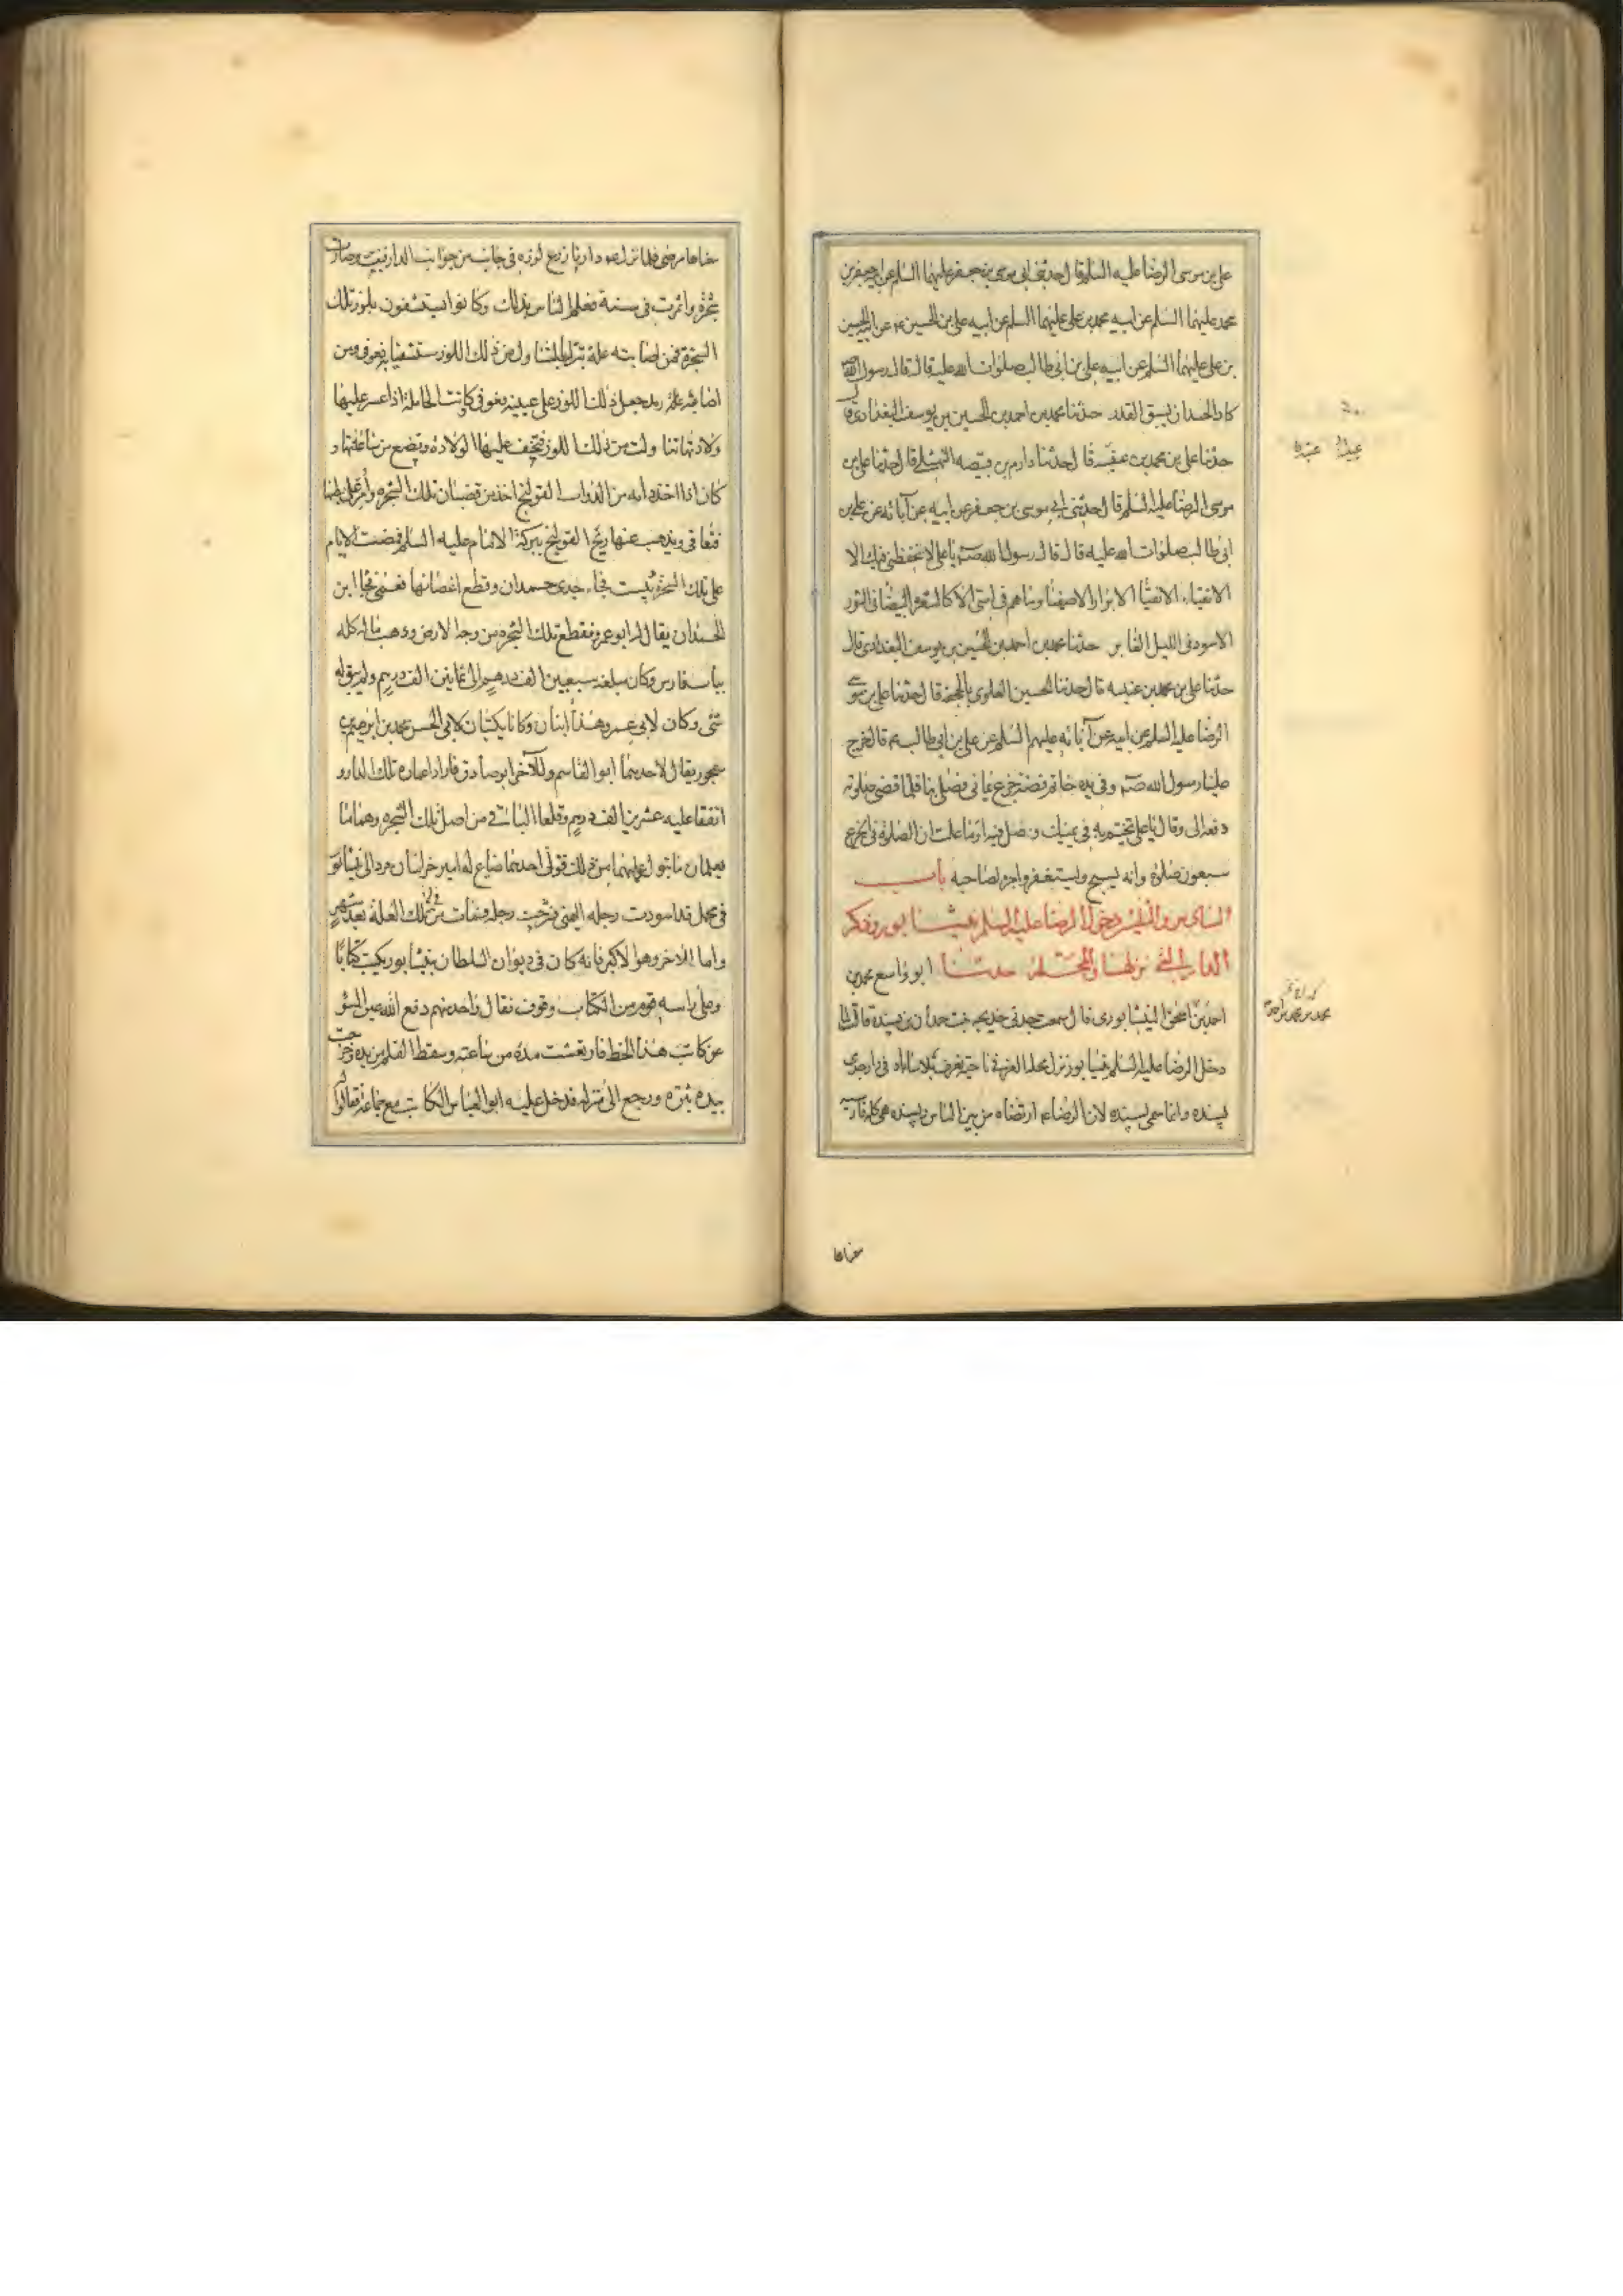 علي بن موسى الرضا عليه السلم قال حدثني ابي موسى بن جعفر عليهما السلم عن ابيه جعفر بن
محمد عليهما السلم عن ابيه محمد بن علي عليهما السلم عن ابيه علي بن الحسين ع عن ابيه الحسين
بن علي عليهما السلم عن ابيه علي بن ابي طالب صلوات الله عليه قال قال رسول الله
كاد الحسد ان يسبق القدر حدثنا محمد بن احمد بن الحسين بن يوسف البغدادي قال
حدثنا علي بن محمد بن قال حدثنا دارم بن قبيصه النهشلي قال حدثنا علي بن
موسى الرضا عليه السلم قال حدثني ابي موسى بن جعفر عن ابيه عن آبائه عن علي بن
ابي طالب صلوات الله عليه قال قال رسول الله صم يا علي لا يحفظني فيك الا
الاتقياء الاتقيا الابرار الاصفيا وما هم في امتي الا كالشعره البيضا في الثور
الاسود في الليل الغابر حدثنا محمد بن احمد بن الحسين بن يوسف البغدادي قال
حدثنا علي بن محمد بن عنبسه قال حدثنا الحسين العلوي بالجحفه قال حدثنا علي بن موسى
الرضا عليه السلم عن ابيه عن آبائه عليهم السلم عن علي بن ابي طالب ع م قال خرج
علينا رسول الله صم وفي يده خاتم فضة جزع يماني فصلى بنا فلما قضى صلوته
دفعه الي وقال يا علي تختم به في يمينك وصل فيه اوما علمت ان الصلوة في الجزع
سبعون صلوة وانه يسبح ويستغفر واجره لصاحبه باب
دخول الرضا عليه السلم بنيشابور وذكر
الدار التي نزلها والمحلة حدثنا ابو واسع محمد بن
احمد بن اسحق النيشابوري قال سمعت جدتي خديجه بنت حمدان بن پسنده قالت لما
دخل الرضا عليه السلم بنيشابور نزل محلة ناحية تعرف في دار جدي
پسنده وانما سمي پسنده لان الرضا ع م ارتضاه من بين الناس وپسنده هي كلمة فارسيه
معناها
عبدك عبده
محمد بن احمد
معناها مرضي فلما نزل ع م دارنا زرع لوزه في جانب من جوانب الدار فنبتت وصارت
شجرة واثمرت في سنة فعلم الناس بذلك وكانوا يستشفون بلوز تلك
الشجرة فمن اصابته علة تبرك بالتناول من ذلك اللوز مستشفيا به عوفي ومن
اصابه رمد جعل ذلك اللوز على عينيه فعوفي وكانت الحاملة اذا عسر عليها
ولادتها تناولت من ذلك اللوز فتخف عليها الولاده وتضع من ساعتها و
كان اذا اخذ دابه من الدواب القولنج اخذ من قضبان تلك الشجره وامر على بطنها
فتعافى ويذهب عنها ريح القولنج ببركة الامام عليه السلم فمضت الايام
على تلك الشجرة يبست فجاء جدي حمدان وقطع اغصانها فعمي فجا ابن
لحمدان يقال له ابو عمرو فقطع تلك الشجره من وجه الارض وذهب ماله كله
بباب فارس وكان مبلغه سبعين الف درهم الى ثمانين الف درهم ولم يبق له
شئ وكان لابي عمرو هذا ابنان وكانا يكتبان لابي الحسن محمد بن ابرهيم بن
سمجور يقال لاحدهما ابو القاسم وللآخر ابو صادق فارادا عماره تلك الدار و
انفقا عليه عشرين الف درهم وقلعا الباقي من اصل تلك الشجره وهما لا
يعلمان ما يتولد عليهما من ذلك فولي احدهما ضياعا لامير خراسان فرد الى نيشابور
في محمل قد اسودت رجله اليمنى فشرحت رجله فمات من تلك العلة بعد شهر
واما الاخر وهو الاكبر فانه كان في ديوان السلطان بنيشابور يكتب كتابا
وعلى راسه قوم من الكتاب وقوف فقال واحد منهم دفع الله عين السوء
عن كاتب هذا الخط فارتعشت يده من ساعته وسقط القلم من يده وخرجت
بيده بثره ورجع الى منزله فدخل عليه ابو العباس الكاتب مع جماعة فقالوا